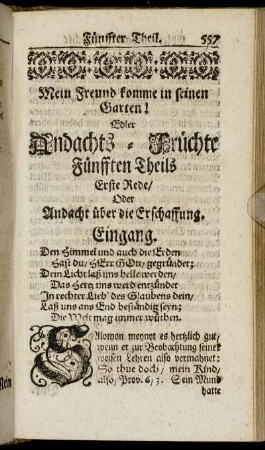 Fünffter Theil. 557
Mein Freund komme in seinen
Garten!
Edler
Andachts-Früchte
Fünfften Theils
Erste Rede/
Oder
Andacht über die Erschaffung.
Eingang.
Den Himmel und auch die Erden
Hast du/ HErr GOtt/ gegründet;
Dein Liecht laß uns helle werden/
Das Hertz uns werd entzündet
In rechter Lieb' des Glaubens dein/
Laß uns ans End beständig seyn;
Die Welt mag immer wüthen.
Salomon meynet es hertzlich gut/
wenn er zur Beobachtung seiner
weisen Lehren also vermahnet:
So thue doch/ mein Kind/
also/ Prov. 6, 3. Sein Mund
hatte